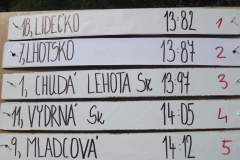 18, LIDEČKO 13:82 1
7, LHOTSKO 13:87 2
1, CHUDÁ LEHOTA SK 13:97 3
11, VYDRNÁ SK 14:05 4
9, MLADCOVÁ 14:12 5